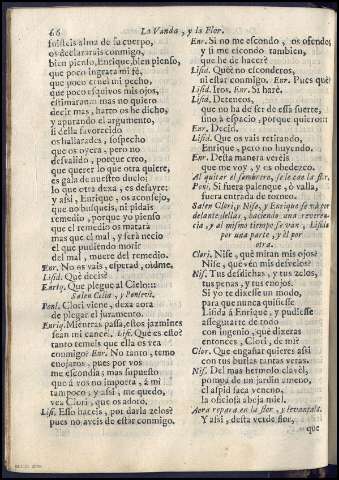 66
La Vanda, y la Flor.
fuisteis alma de su cuerpo,
os declararais conmigo,
bien pienso, Enrique, bien pienso,
que poco ingrata mi fè,
que poco cruel mi pecho,
que poco esquivos mis ojos,
estimaran: mas no quiero
decir mas, harto os he dicho;
y apurando el argumento,
si della favorecido
os hallarades, sospecho
que os oyera, pero no
desvalido, porque creo,
que querer lo que otra quiere,
es gala de nuestro duelo:
lo que otra dexa, es desayre;
y assi, Enrique, os aconsejo,
que no busqueis, ni pidais
remedio, porque yo pienso
que el remedio os matarà
mas que el mal, y serà necio
el que pudiendo morir
del mal, muere del remedio.
Enr. No os vais, esperad, oidme.
Lisid. Què decis?
Enriq. Que plegue al Cielo::
Salen Celia, y Ponlevi.
Ponl. Clori viene, dexa aora
de plegar el juramento.
Enriq. Mientras passa, estos jazmines
sean mi cancel. Lisid. Què es esso?
tanto temeis que ella os vea
conmigo? Enr. No tanto, temo
enojaros, pues por vos
me escondia; mas supuesto
que à vos no importa, à mi
tampoco, y assi, me quedo,
vea Clori, que os adoro.
Lis. Esso haceis, por darla zelos?
pues no aveis de estar conmigo.
Enr. Si no me escondo, os ofendeis,
y si me escondo tambien,
què he de hacer?
Lisid. Què? no esconderos,
ni estar conmigo. Enr. Pues què?
Lisid. Iros. Enr. Si harè.
Lisid. Deteneos,
que no ha de ser de essa suerte,
sino à espacio, porque quiero::
Enr. Decid.
Lisid. Que os vais retirando,
Enrique, pero no huyendo.
Enr. Desta manera verèis
que me voy, y os obedezco.
Al quitar el sombrero, se le cae la flor.
Ponl. Si fuera palenque, ò valla,
fuera entrada de torneo.
Salen Clori, Nise, y Enrique se và por
delante dellas, haciendo una reveren-
cia, y al mismo tiempo se van, Lisida
por una parte, y èl por
otra.
Clori. Nise, què miran mis ojos?
Nise, què vèn mis desvelos?
Nis. Tus desdichas, y tus zelos,
tus penas, y tus enojos.
Si yo te dixesse un modo,
para que nunca quisiesse
Lisida à Enrique, y pudiesse
assegurarte de todo
con ingenio, què dixeras
entonces, Clori, de mi?
Clor. Que engañar quieres assi
con tus burlas tantas veras.
Nis. Del mas hermoso clavèl,
pompa de un jardin ameno,
el aspid saca veneno,
la oficiosa abeja miel.
Aora repara en la flor, y levantala.
Y assi, desta verde flor,
que